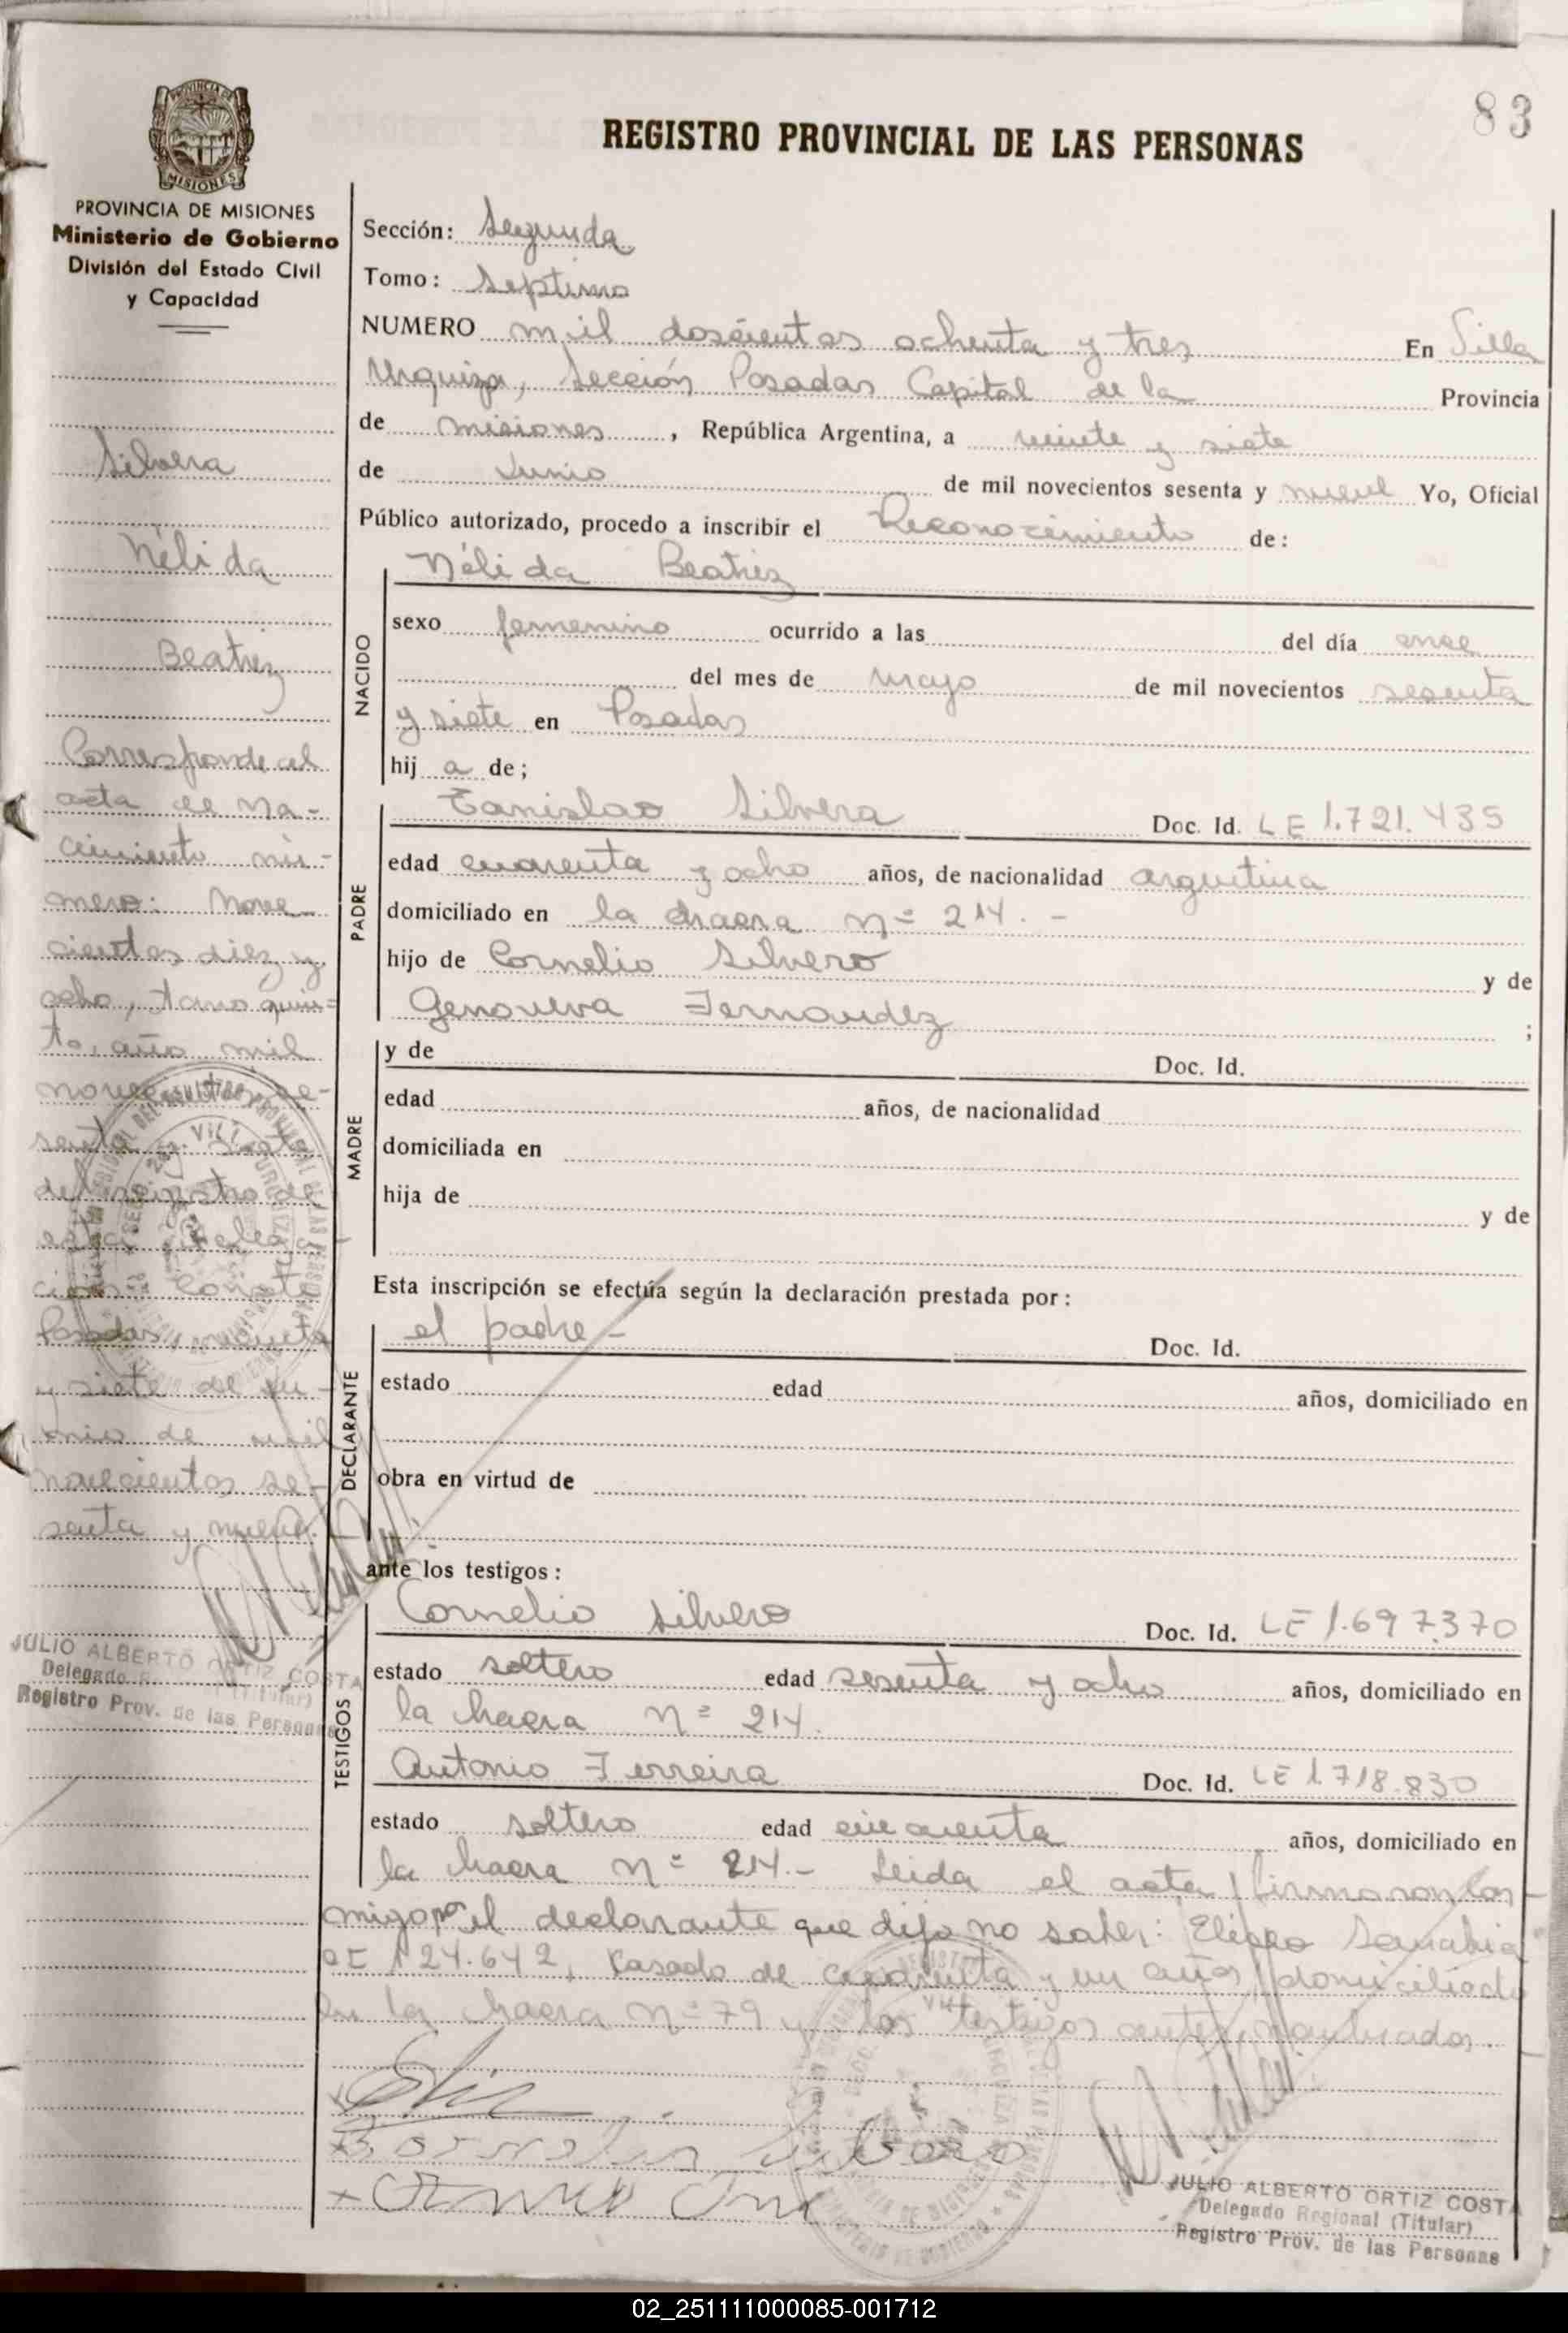 83
REGISTRO PROVINCIAL DE LAS PERSONAS
PROVINCIA DE MISIONES
PROVINCIA DE MISIONES
Ministerio de Gobierno
División del Estado Civil
y Capacidad
Silvera
Nélida
Beatriz
Corresponde al
acta de na-
cimiento nú-
mero: nove
cientos diez y
ocho, tomo quin=
to, año mil
novecientos se-
senta y siete
del registro de
esta
Conste
Posadas, veinte
y siete de ju-
nio de mil
novecientos se-
senta y nueve.
JULIO ALBERTO ORTIZ COSTA
Delegado Regional (Titular)
Registro Prov. de las Personas
Sección: Segunda
Tomo: Septimo
NUMERO mil doscientos ochenta y tres En Villa
Urquiza, Sección Posadas Capital de la Provincia
de misiones, República Argentina, a veinte y siete
de Junio de mil novecientos sesenta y nueve Yo, Oficial
Público autorizado, procedo a inscribir el Reconocimiento de:
NACIDO
Nélida Beatriz
sexo femenino ocurrido a las del día once
del mes de mayo de mil novecientos sesenta
y siete en Posadas
hij a de;
PADRE
Tanislao Silvera Doc. Id. LE 1.721.435
edad cuarenta y ocho años, de nacionalidad argentina
domiciliado en la chacra nº 214. -
hijo de Cornelio Silvero y de
Genoveva Fernandez ;
MADRE
y de Doc. Id.
edad años, de nacionalidad
domiciliada en
hija de y de
Esta inscripción se efectúa según la declaración prestada por:
DECLARANTE
el padre - Doc. Id.
estado edad años, domiciliado en
obra en virtud de
ante los testigos:
TESTIGOS
Cornelio Silvero Doc. Id. LE 1.697.370
estado soltero edad sesenta y ocho años, domiciliado en
la chacra nº 214.
Antonio Ferreira Doc. Id. LE 1.718.830
estado soltero edad cincuenta años, domiciliado en
la chacra nº 214.- Leida el acta, firmaron con
migo por el declarante que dijo no saber: Eliseo
124.642, casado de cuarenta y un años, domiciliado
en la chacra nº 79 y los testigos antes nombrados.
JULIO ALBERTO ORTIZ COSTA
Delegado Regional (Titular)
Registro Prov. de las Personas
02_251111000085-001712